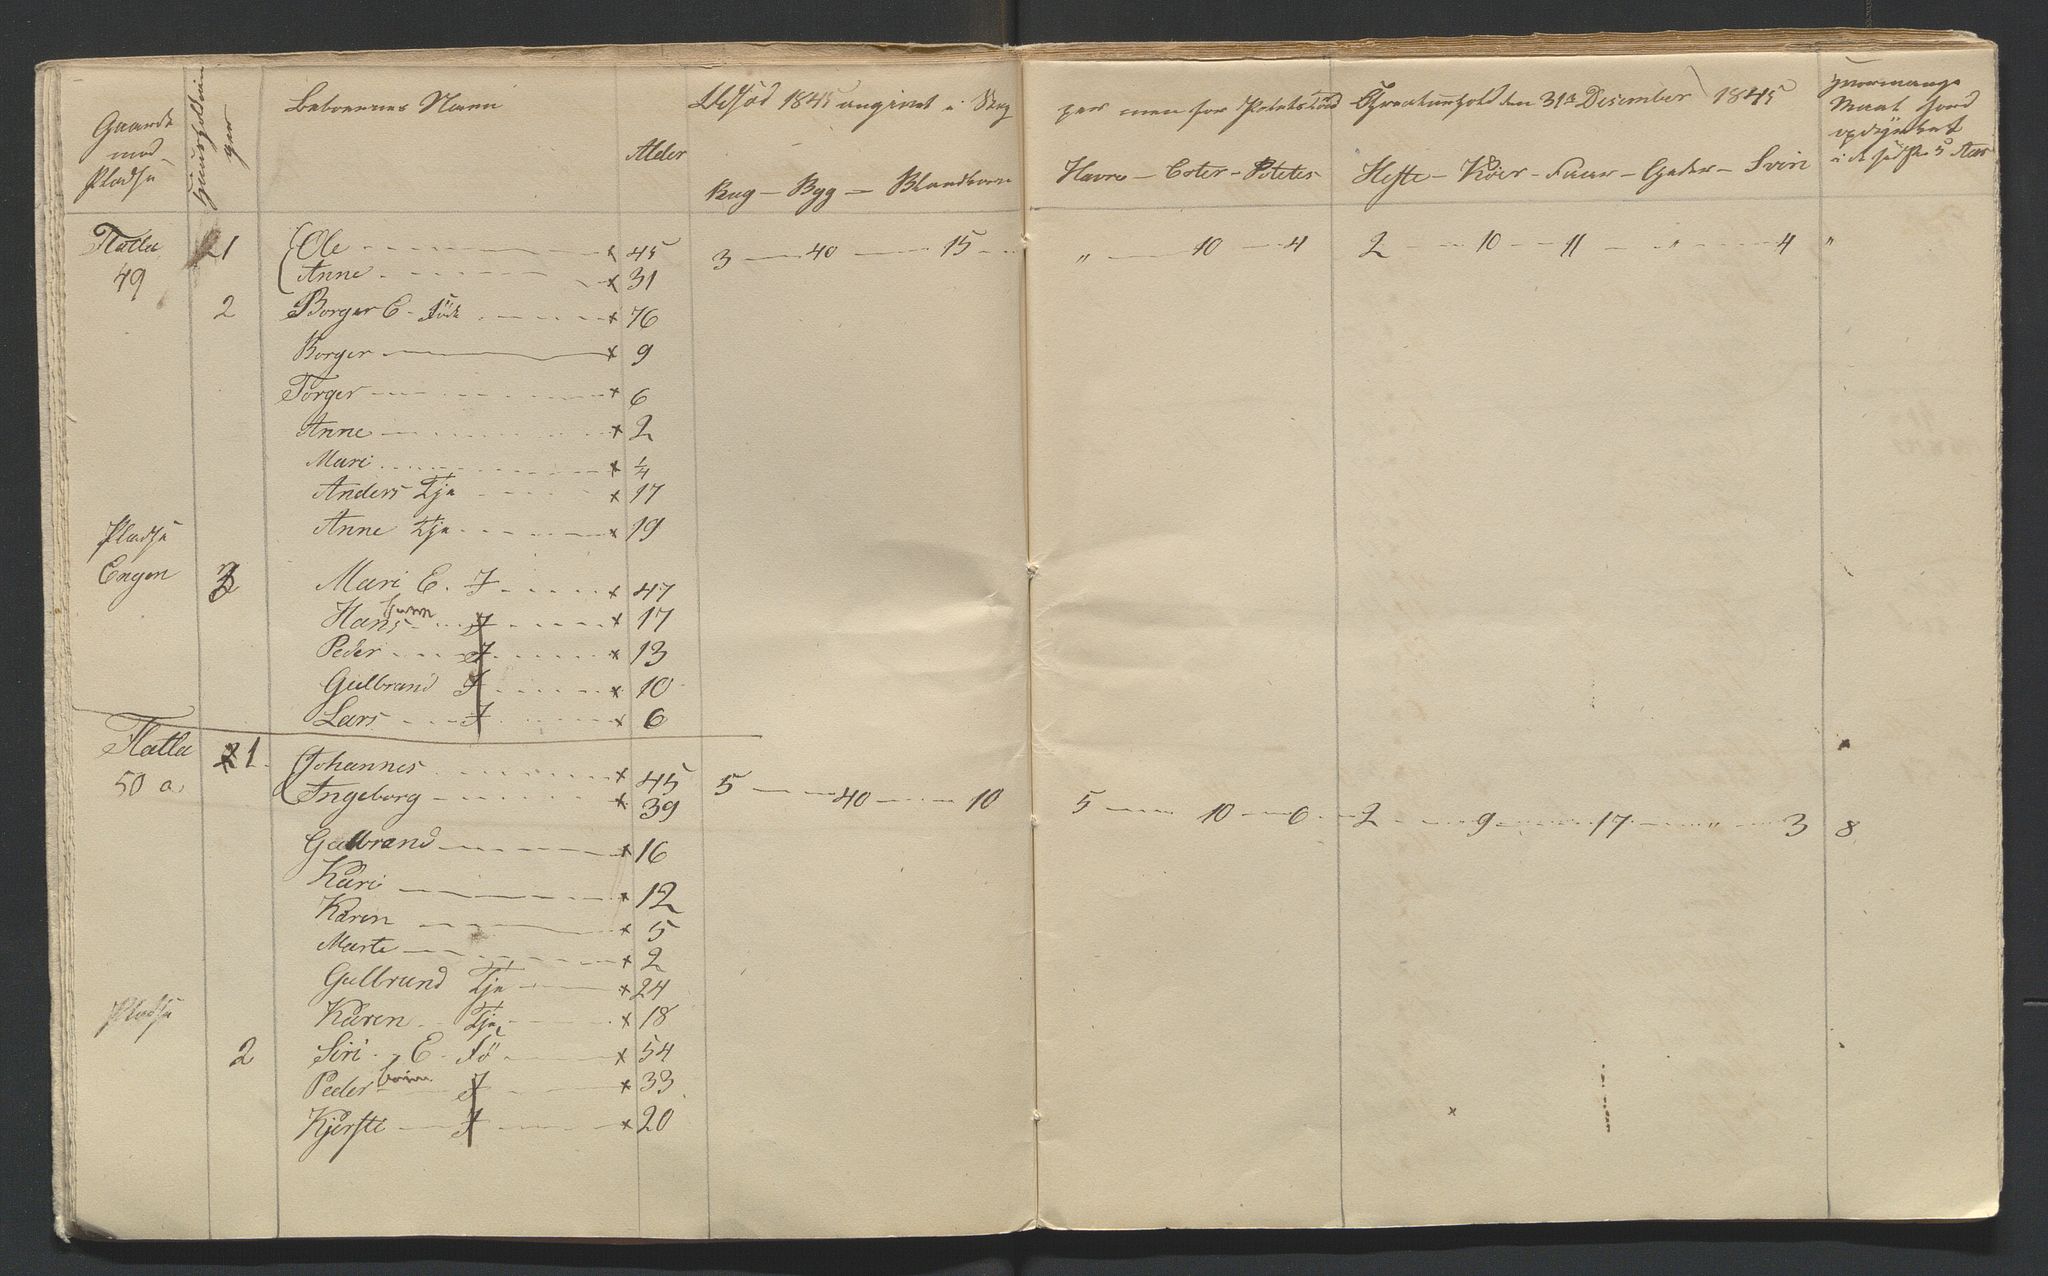 Gaarde
med
Pladse
Huusholdnin
ger
Beboernes Navn
Alder
Udsæd 1845 angivet i Skjæp
per men for Potetes Tønder
Rug - Byg - Blandkorn
Havre - Erter - Potetes
Creaturhold den 31te Desember 1845
Heste - Køer - Faar - Gjeder - Svin
Hvormange
Maal Jord
opdyrket
i de sidste 5 Aar
Flatla 1 Ole 45 3 40 15 " 10 4 2 10 11 " 4 "
49 Anne 31
2 Borger E. Føde 76
Borger 9
Torger 6
Anne 2
Mari 1/4
Anders Tje 17
Anne Tje 19
Pladse
Engen 3 Mari E. I 47
Hans I 17
Peder I 13
Gulbrand I 10
Lars I 6
Flatla 1 Johannes 45 5 40 10 5 10 6 2 9 17 " 3 8
50 a. Ingeborg 39
Gulbrand 16
Kari 12
Karen 5
Marte 2
Gulbrand Tje 24
Karen Tje 18
Pladse
2 Siri E. Fø 54
Peder børn I 33
Kjersti I 20